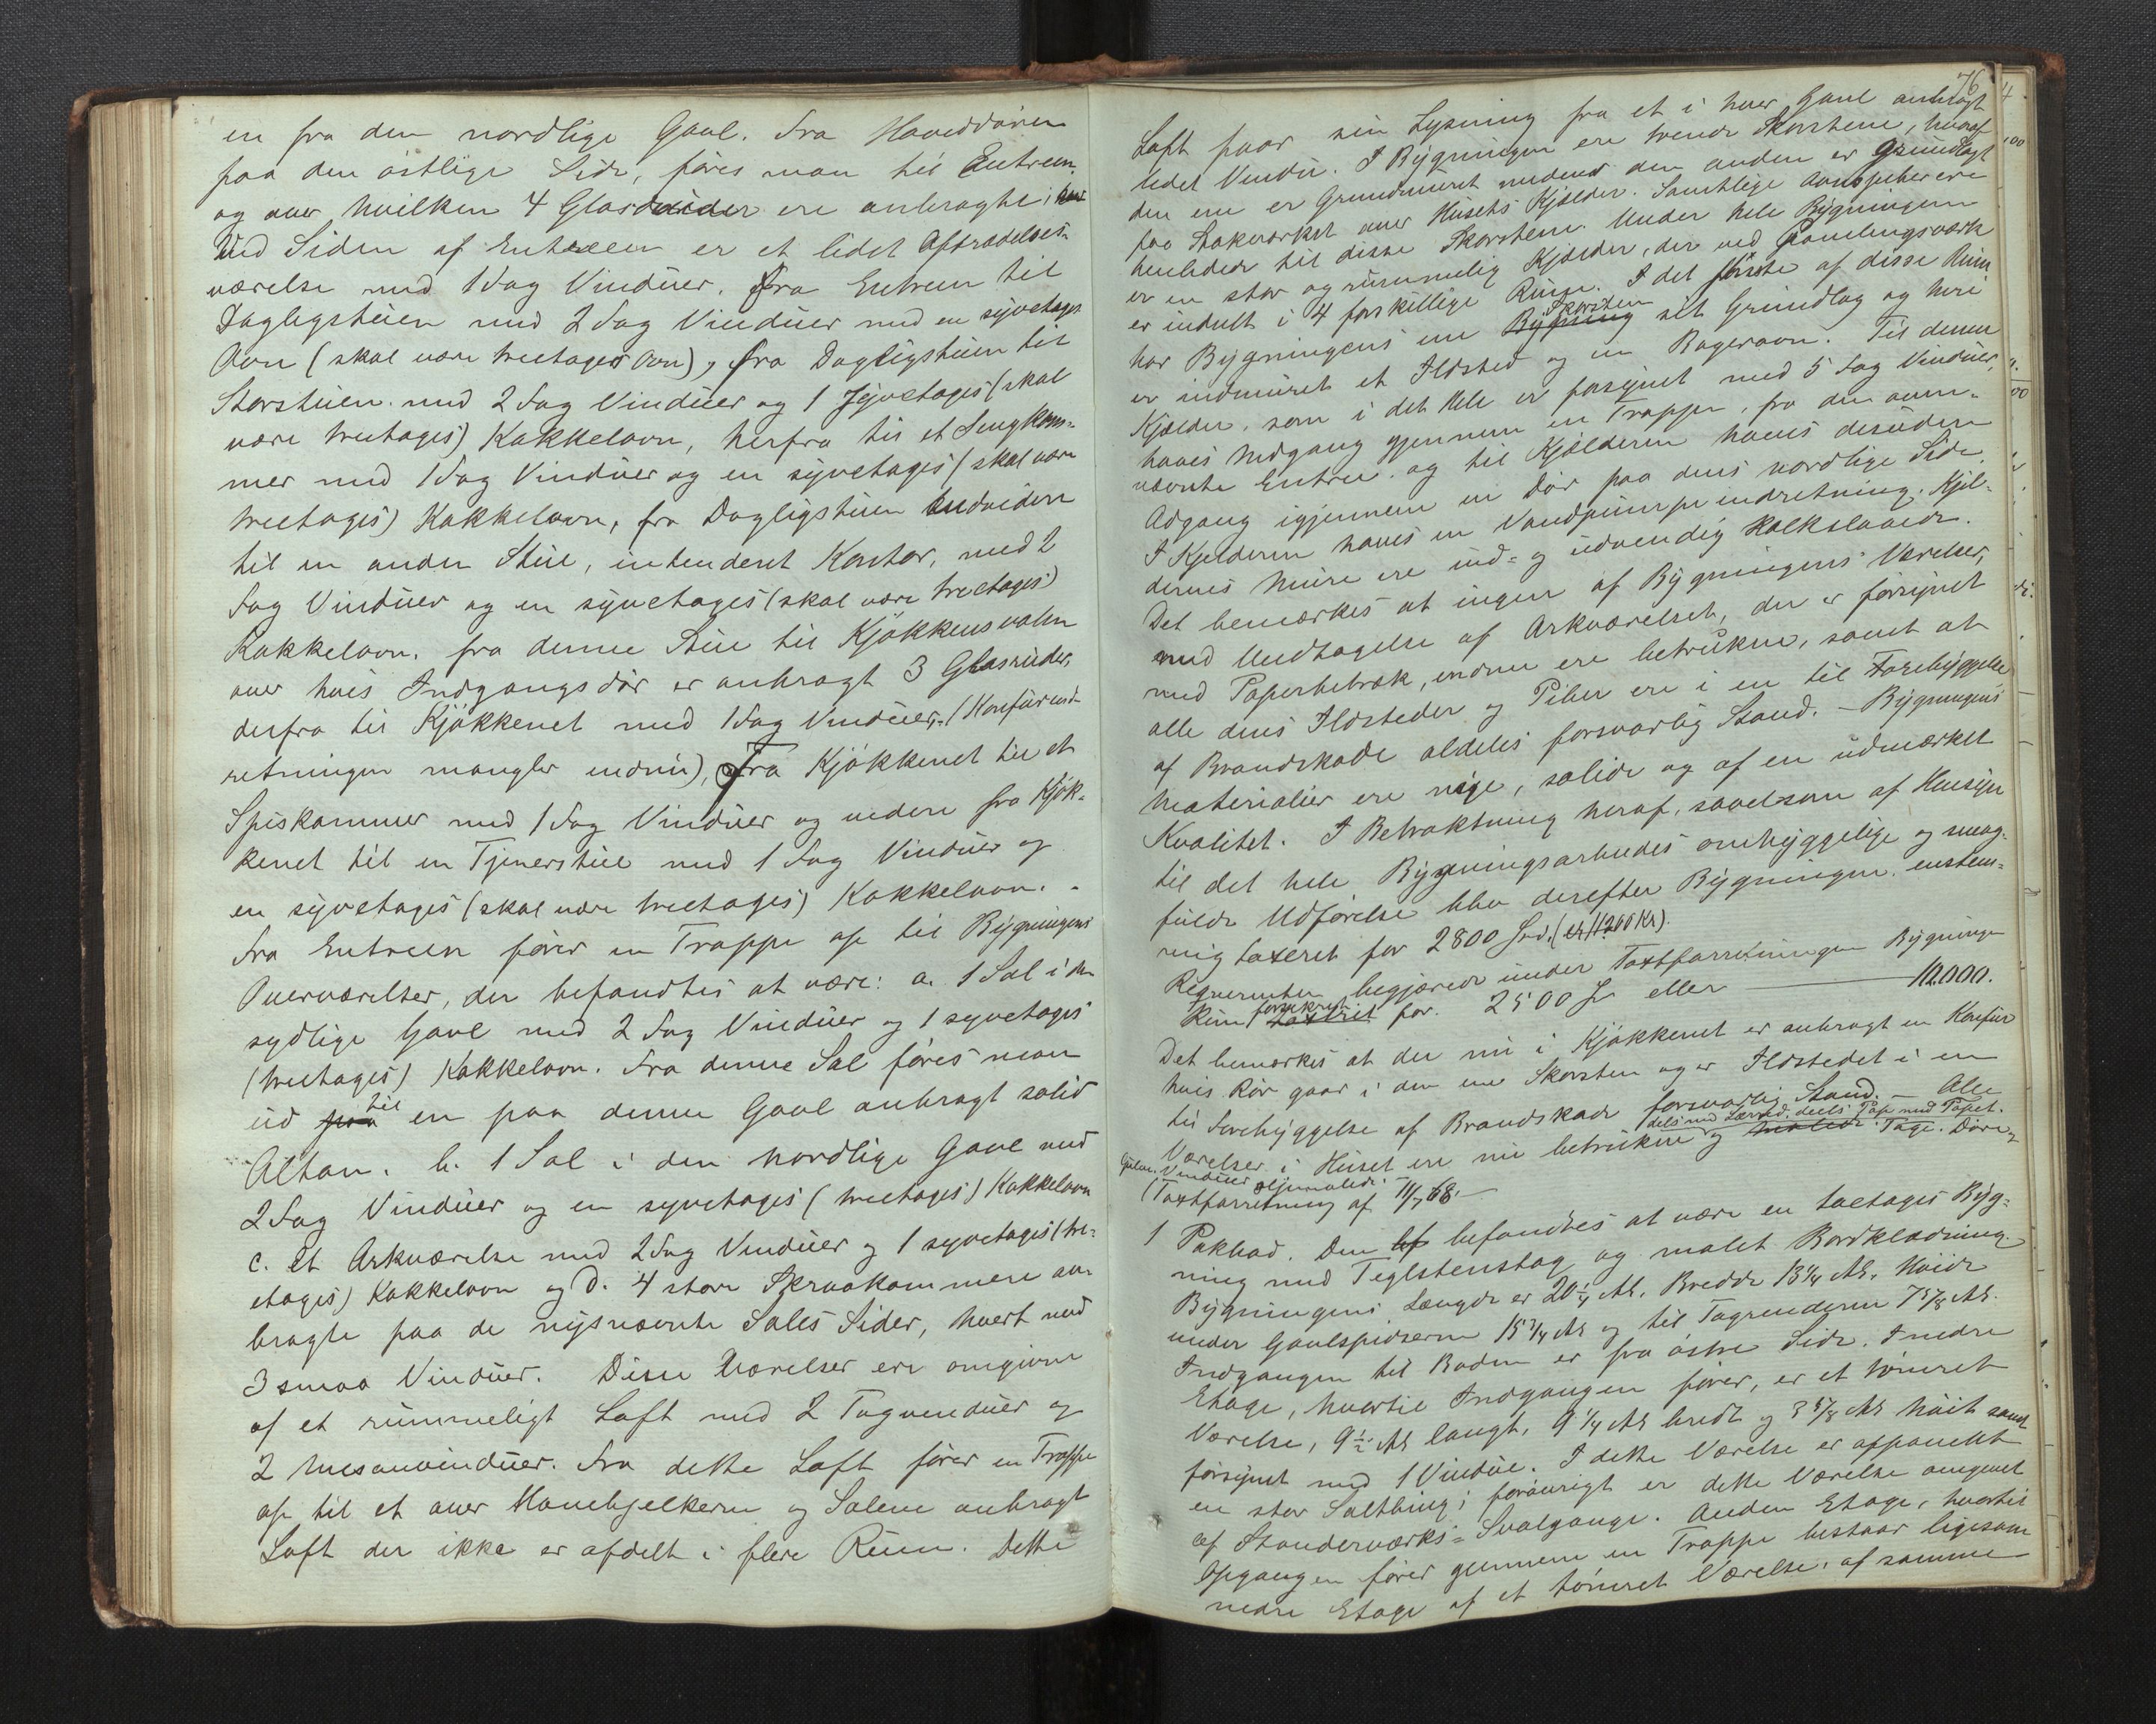 en fra den nordlige Gavl. Fra Hoveddøren
paa den östlige Side, føres man til Entreen
og over hvilken 4 Glasruder ere anbragte;
Ved Siden af Entreen er et lidet Aftrædelses-
værelse med 1 Fag Vinduer. Fra Entreen til
Dagligstuen med 2 Fag Vinduer med en syvetages
Ovn (skal være treetages Ovn), fra Dagligstuen til
Storstuen med 2 Fag Vinduer og 1 syvetages (skal
være treetages) Kakkelovn, herfra til et Sengkam-
mer med 1 Fag Vinduer og en syvetages (skal være
treetages) Kakkelovn, fra Dagligstuen endvidere
til en anden Stue, intenderet Kontor, med 2
Fag Vinduer og en syvetages (skal være treetages)
Kakkelovn. fra denne Stue til Kjøkkensvalen
over hvis Indgangsdör er anbragt 3 Glasruder,
derfra til Kjøkkenet med 1 Fag Vinduer, (Komfurind-
retningen mangler endnu), Fra Kjökkenet til et
Spiskammer med 1 Fag Vinduer og videre fra Kjök-
kenet til en Tjenerstue med 1 Fag Vinduer og
en syvetages (skal være treetages) Kakkelovn. -
Fra Entreen fører en Trappe op til Bygningens
Overværelser, der befandtes at være: a. 1 Sal i den
sydlige Gavl med 2 Fag Vinduer og 1 syvetages
(treetages) Kakkelovn. Fra denne Sal føres man
ud paa til en paa denne Gavl anbragt solid
Altan. b. 1 Sal i den nordlige Gavl med
2 Fag Vinduer og en syvetages (treetages) Kakkelovn
c. et Arkværelse med 2 Fag Vinduer og 1 syvetages (tre-
etages) Kakkelovn og d. 4 store Skraakammere an-
bragte paa de nysnævnte Sales Sider, hvert med
3 smaa Vinduer. Disse Værelser ere omgivne
af et rummeligt Loft med 2 Tagvinduer og
2 Mesanvinduer. Fra dette Loft fører en Trappe
op til et over Hanebjelkerne og Salene anbragt
Loft der ikke er afdelt i flere Rum. Dette
76
Loft faar sin Lysning fra et i hver Gavl anbragt
lidet Vindu. I Bygningen ere tvende Skorstene, hvoraf
den ene er Grundmuret medens den anden er Grundlagt
paa Stokværket over Husets Kjelder. Samtlige Ovnspiber ere
henledede til disse Skorstene. Under hele Bygningen
er en stor og rummelig Kjelder, der ved Panelingsværk
er inddelt i 4 forskillige Rum. I det første af disse Rum
har Bygningens ene Bygning Skorsten sit Grundlag og heri
er indmuret et Ildsted og en Bagerovn. Til denne
Kjelder, som i det Hele er forsynet med 5 Fag Vinduer,
haves Nedgang gjennem en Trappe, fra den oven-
nævnte Entree. og til Kjelderen haves desuden
Adgang igjennem en Dör paa dens nordlige Side.
I Kjelderen haves en Vandpumpeindretning. Kjel-
derens Mure ere ind- og udvendig kalkslaaede.
Det bemærkes at ingen af Bygningens Værelser,
med Undtagelse af Arkværelset, der er forsynet
med Paperbetræk, endnu ere betrukne, samt at
alle dens Ildsteder og Piber ere i en til Forebyggelse
af Brandskade aldeles forsvarlig Stand. - Bygningens
Materialier ere nye, solide og af en udmærket
Kvalitet. I Betraktning heraf, saavelsom af Hensyn
til det hele Bygningsarbeides omhyggelige og smag-
fulde Udførelse blev derefter Bygningen enstem-
mig taxeret for 2800 Spd. (11200 Kr).
Reqverenten begjærede under Taxtforretningen Bygningen
kun taxeret forsikret for 2500 Sp eller ——— 10.000.
Det bemærkes at der nu i Kjøkkenet er anbragt en Komfur
hvis Rör gaar i den ene Skorsten og er Ildstedet i en
til Forebyggelse af Brandskade forsvarlig Stand. - Alle
Værelser i Huset ere nu betrukne dels med Lærred, deels Pap med Tapet. og malede Tage. Döre,
Gulve, Vinduer oljemalede. -
(Taxtforretning af 11/7 68. -
1 Pakbod. Den befandtes at være en toetages Byg-
ning med Teglstenstag og malet Bordklædning.
Bygningens Længde er 20 1/4 Al. Bredde 13 1/4 Al. Høide
under Gavlspidserne 15 3/4 Al og til Tagrenderne 7 5/8 Al.
Indgangen til Boden er fra østre Side. Nedre
Etage, hvortil Indgangen fører, er et tömret
Værelse, 9 1/2 Al langt, 9 1/4 Al bredt og 3 5/8 Al høit samt
forsynet med 1 Vindue. I dette Værelse er afpanelet
en stor Saltbing; forövrigt er dette Værelse omgivet
af Standerværks-Svalgange. Anden Etage, hvortil
Opgangen fører gjennem en Trappe bestaar ligesom
nedre Etage af et tömret Værelse, af samme